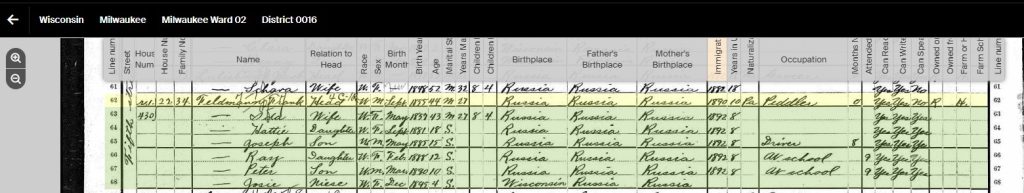 Wisconsin Milwaukee Milwaukee Ward 02 District 0016
Line num Street House Num Family No Name Relation to Head Race Sex Birth Month Birth Year Age Marital St Years Ma Children Children Birthplace Father's Birthplace Mother's Birthplace Immigrat Years in U Naturaliz Occupation Months N Attended Can Read Can Write Can Spea Owned o Owned fr Farm or H Farm Sch Line num
61 — Wife W F 1848 52 M 32 8 4 Russia Russia Russia 1882 18 Yes Yes No 61
62 22 34 Feldmann, Frank Head W M Sept 1855 44 M 27 Russia Russia Russia 1890 10 Pa Peddler 0 Yes Yes No R H 62
63 430 — Ida Wife W F May 43 M 27 8 4 Russia Russia Russia 1892 8 Yes Yes No 63
64 — Hattie Daughter W F Sept 1881 18 S Russia Russia Russia 1892 8 Yes Yes Yes 64
65 — Joseph Son W M May 1885 15 S Russia Russia Russia 1892 8 Driver 8 Yes Yes Yes 65
66 — Ray Daughter W F Feb 1888 12 S Russia Russia Russia 1892 8 At school 9 Yes Yes Yes 66
67 — Peter Son W M Mar 1890 10 S Russia Russia Russia 1892 8 At school 9 Yes Yes Yes 67
68 — Josie Niese W F Dec 1895 4 S Wisconsin Russia Russia 68